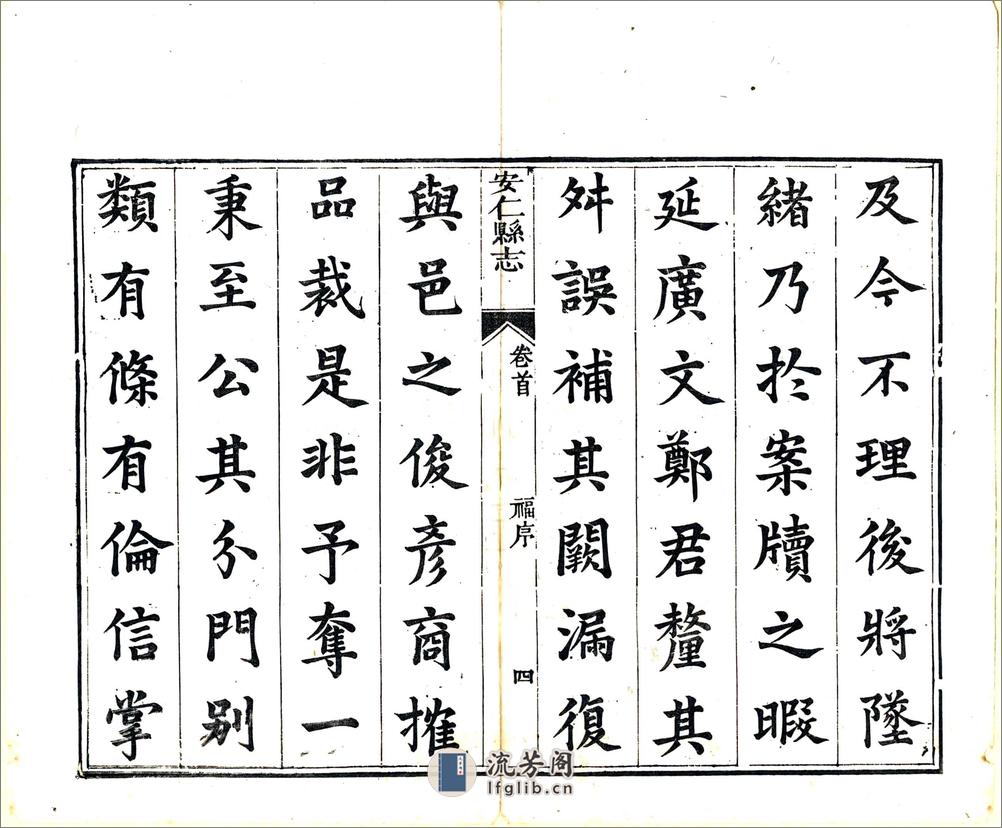 及今不理後將墜
緒乃於案牘之暇
延廣文鄭君釐其
舛誤補其闕漏復
安仁縣志 卷首 福序 四
與邑之俊彥商搉
品裁是非予奪一
秉至公其分門別
類有條有倫信掌
流芳阁
lfglib.cn